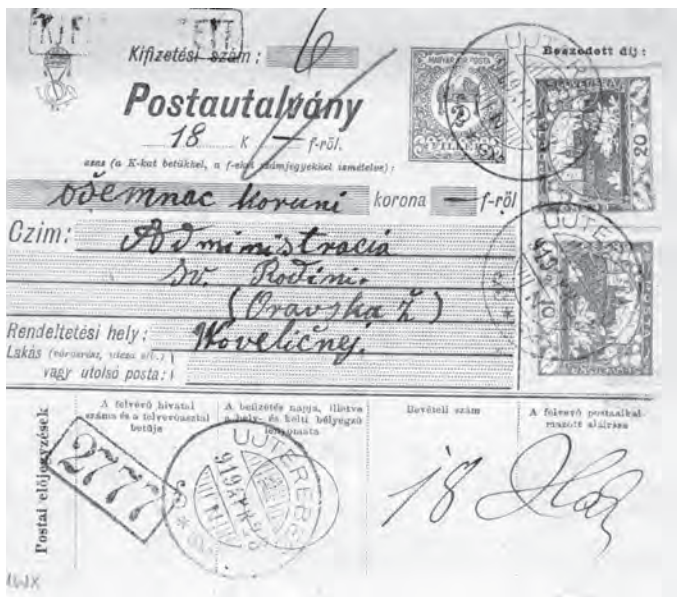 Kifizetési szám: 6
Beszedett díj:
MAGYAR KIR POSTA
2
FILLÉR
20
Postautalvány
18 K — f-ről.
azaz (a K-kat betűkkel, a f-eket számjegyekkel ismételve):
ošemnac koruni korona — f-ről
Czim: Administracia
sv. Rodini.
(Oravska Ž)
Rendeltetési hely: Woveličnej.
Lakás (városrész, utcza stb.)
vagy utolsó posta:
UJTEREBES
919 APR
UJTEREBES
919
Postai előjegyzések
A felvevő hivatal száma és a felvevőasztal betűje
A befizetés napja, illetve a hely- és kelti bélyegző lenyomata
Bevételi szám
A felvevő postaalkalmazott aláírása
2777
UJTEREBES
919 APR 28
18